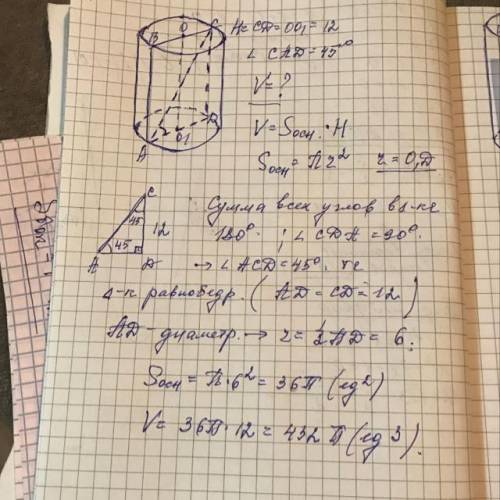 O
C
B
H = CD = OO₁ = 12
∠ CAD = 45°
V = ?
V = Sосн. · H
A
O1
D
Sосн = πr² r = O₁D
C
45
12
A
45
D
Сумма всех углов в
180° ; ∠ CDA = 90°.
→ ∠ ACD = 45°, т.е
Δ-к равнобедр. ( AD = CD = 12 )
AD - диаметр. → r = ½ AD = 6.
Sосн = π · 6² = 36π (ед²)
V = 36π · 12 = 432 π (ед³).